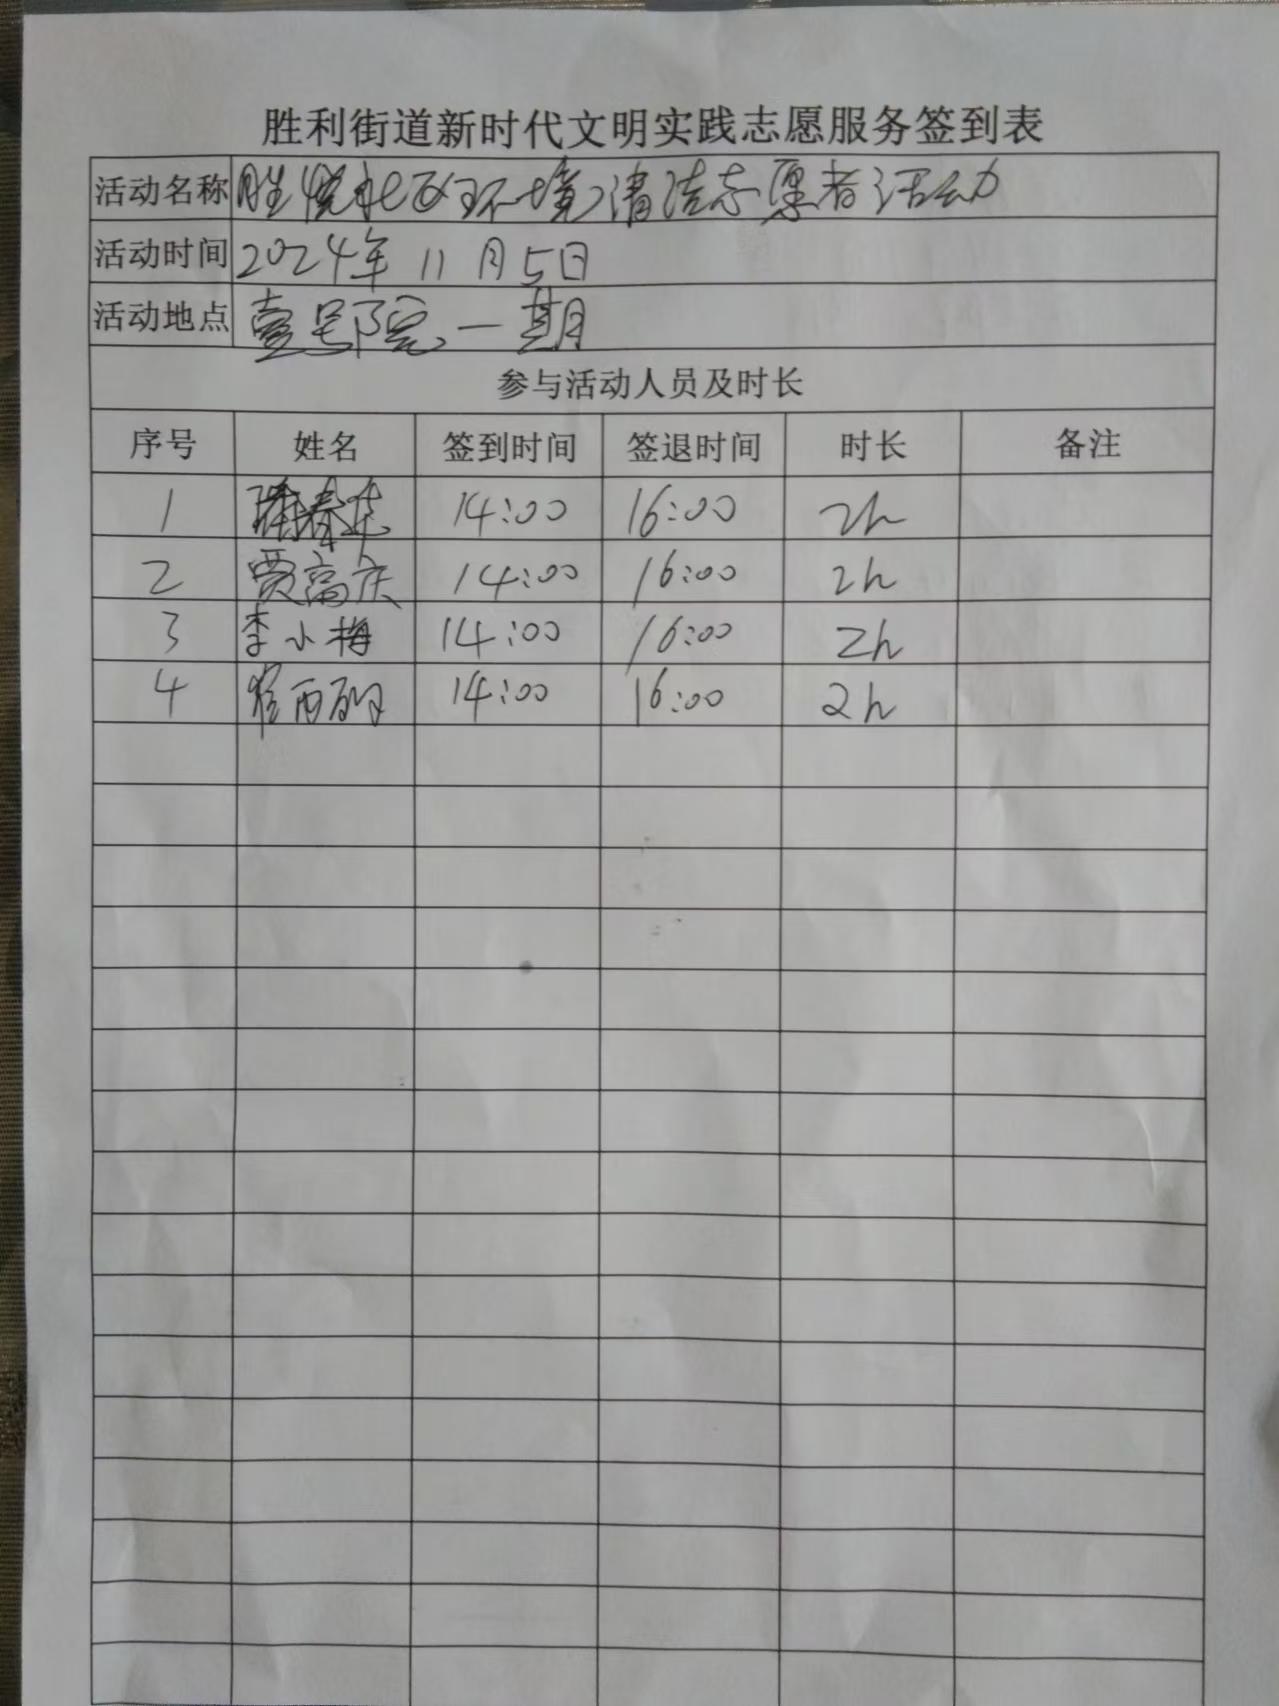 胜利街道新时代文明实践志愿服务签到表
活动名称 胜悦社区环境清洁志愿者活动
活动时间 2024年11月5日
活动地点 壹号院一期
参与活动人员及时长
序号 姓名 签到时间 签退时间 时长 备注
1 14:00 16:00 2h
2 贾高庆 14:00 16:00 2h
3 李小梅 14:00 16:00 2h
4 14:00 16:00 2h